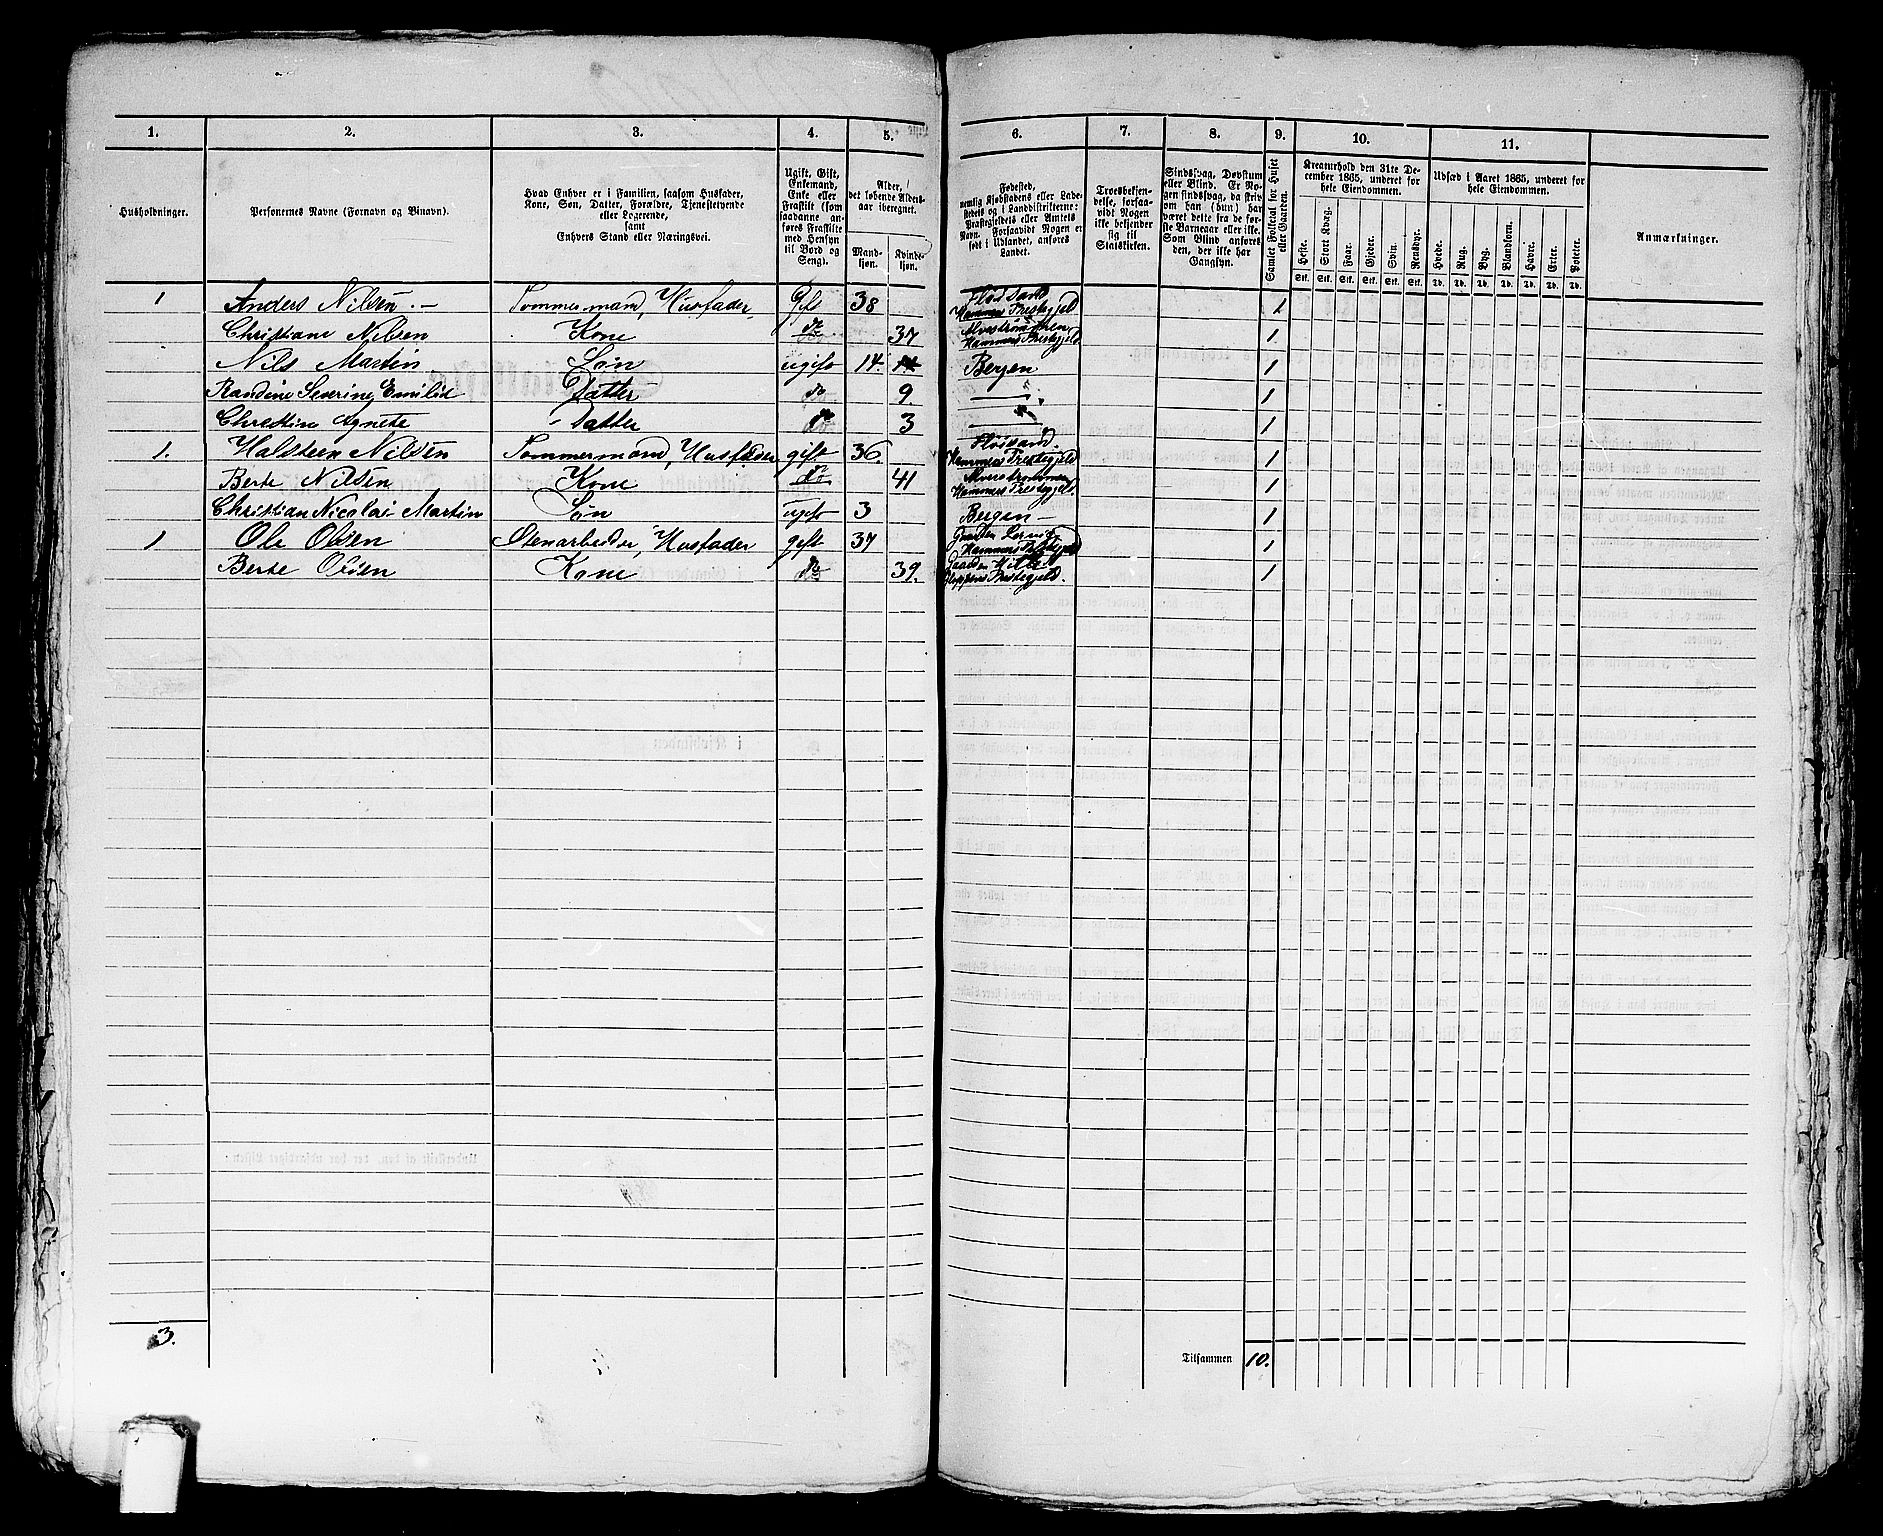 1. 2. 3. 4. 5. 6. 7. 8. 9. 10. 11.
Husholdninger.
Personernes Navne (Fornavn og Binavn).
Hvad Enhver er i Familien, saasom Husfader,
Kone, Søn, Datter, Forældre, Tjenestetyende
eller Logerende,
samt
Enhvers Stand eller Næringsvei.
Ugift, Gift,
Enkemand,
Enke eller
Fraskilt (som
saadanne an-
føres Fraskilte
med Hensyn
til Bord og
Seng).
Alder,
det løbende Alders-
aar iberegnet.
Mand-
kjøn.
Kvinde-
kjøn.
Fødested,
nemlig Kjøbstadens eller Lade-
stedets og i Landdistrikterne:
Præstegjeldets eller Amtets
Navn. Forsaavidt Nogen er
født i Udlandet, anføres
Landet.
Troesbekjen-
delse, forsaa-
vidt Nogen
ikke bekjender
sig til
Statskirken.
Sindssvag, Døvstum
eller Blind. Er No-
gen sindssvag, da skriv
om han (hun) har
været dette fra de før-
ste Barneaar eller ikke.
Som Blind anføres
den, der ikke har
Gangsyn.
Samlet Folketal for Huset
eller Gaarden.
Kreaturhold den 31te De-
cember 1865, underet for
hele Eiendommen.
Heste. Stort Kvæg. Faar. Gjeder. Svin. Rensdyr.
Stk. Stk. Stk. Stk. Stk. Stk.
Udsæd i Aaret 1865, underet for
hele Eiendommen.
Hvede. Rug. Byg. Blandkorn. Havre. Erter. Poteter.
Td. Td. Td. Td. Td. Td. Td.
Anmærkninger.
1 Anders Nilsen Tømmermand, Husfader, Gift 38 Flodsand Hammers Prestegjeld 1
Christiane Nilsen Kone do 37 Alverstrømmen Hammers Prestegjeld 1
Nils Martin Søn ugift 14 Bergen 1
Randine Severine Emilie Datter do 9. 1
Christine Agnete Datter do 3 1
1. Halsteen Nilsen Tømmermand, Husfader gift 36 Hammers Prestegjeld 1
Berte Nilsen Kone do 41 Alverstrømmen Hammers Prestegjeld. 1
Christian Nicolai Martin Søn ugift 3 Bergen 1
1 Ole Olsen Stenarbeider, Husfader gift 37 Hammers Prestegjeld 1
Berte Olsen Kone do 39. Gloppens Prestegjeld. 1
3.
Tilsammen 10.